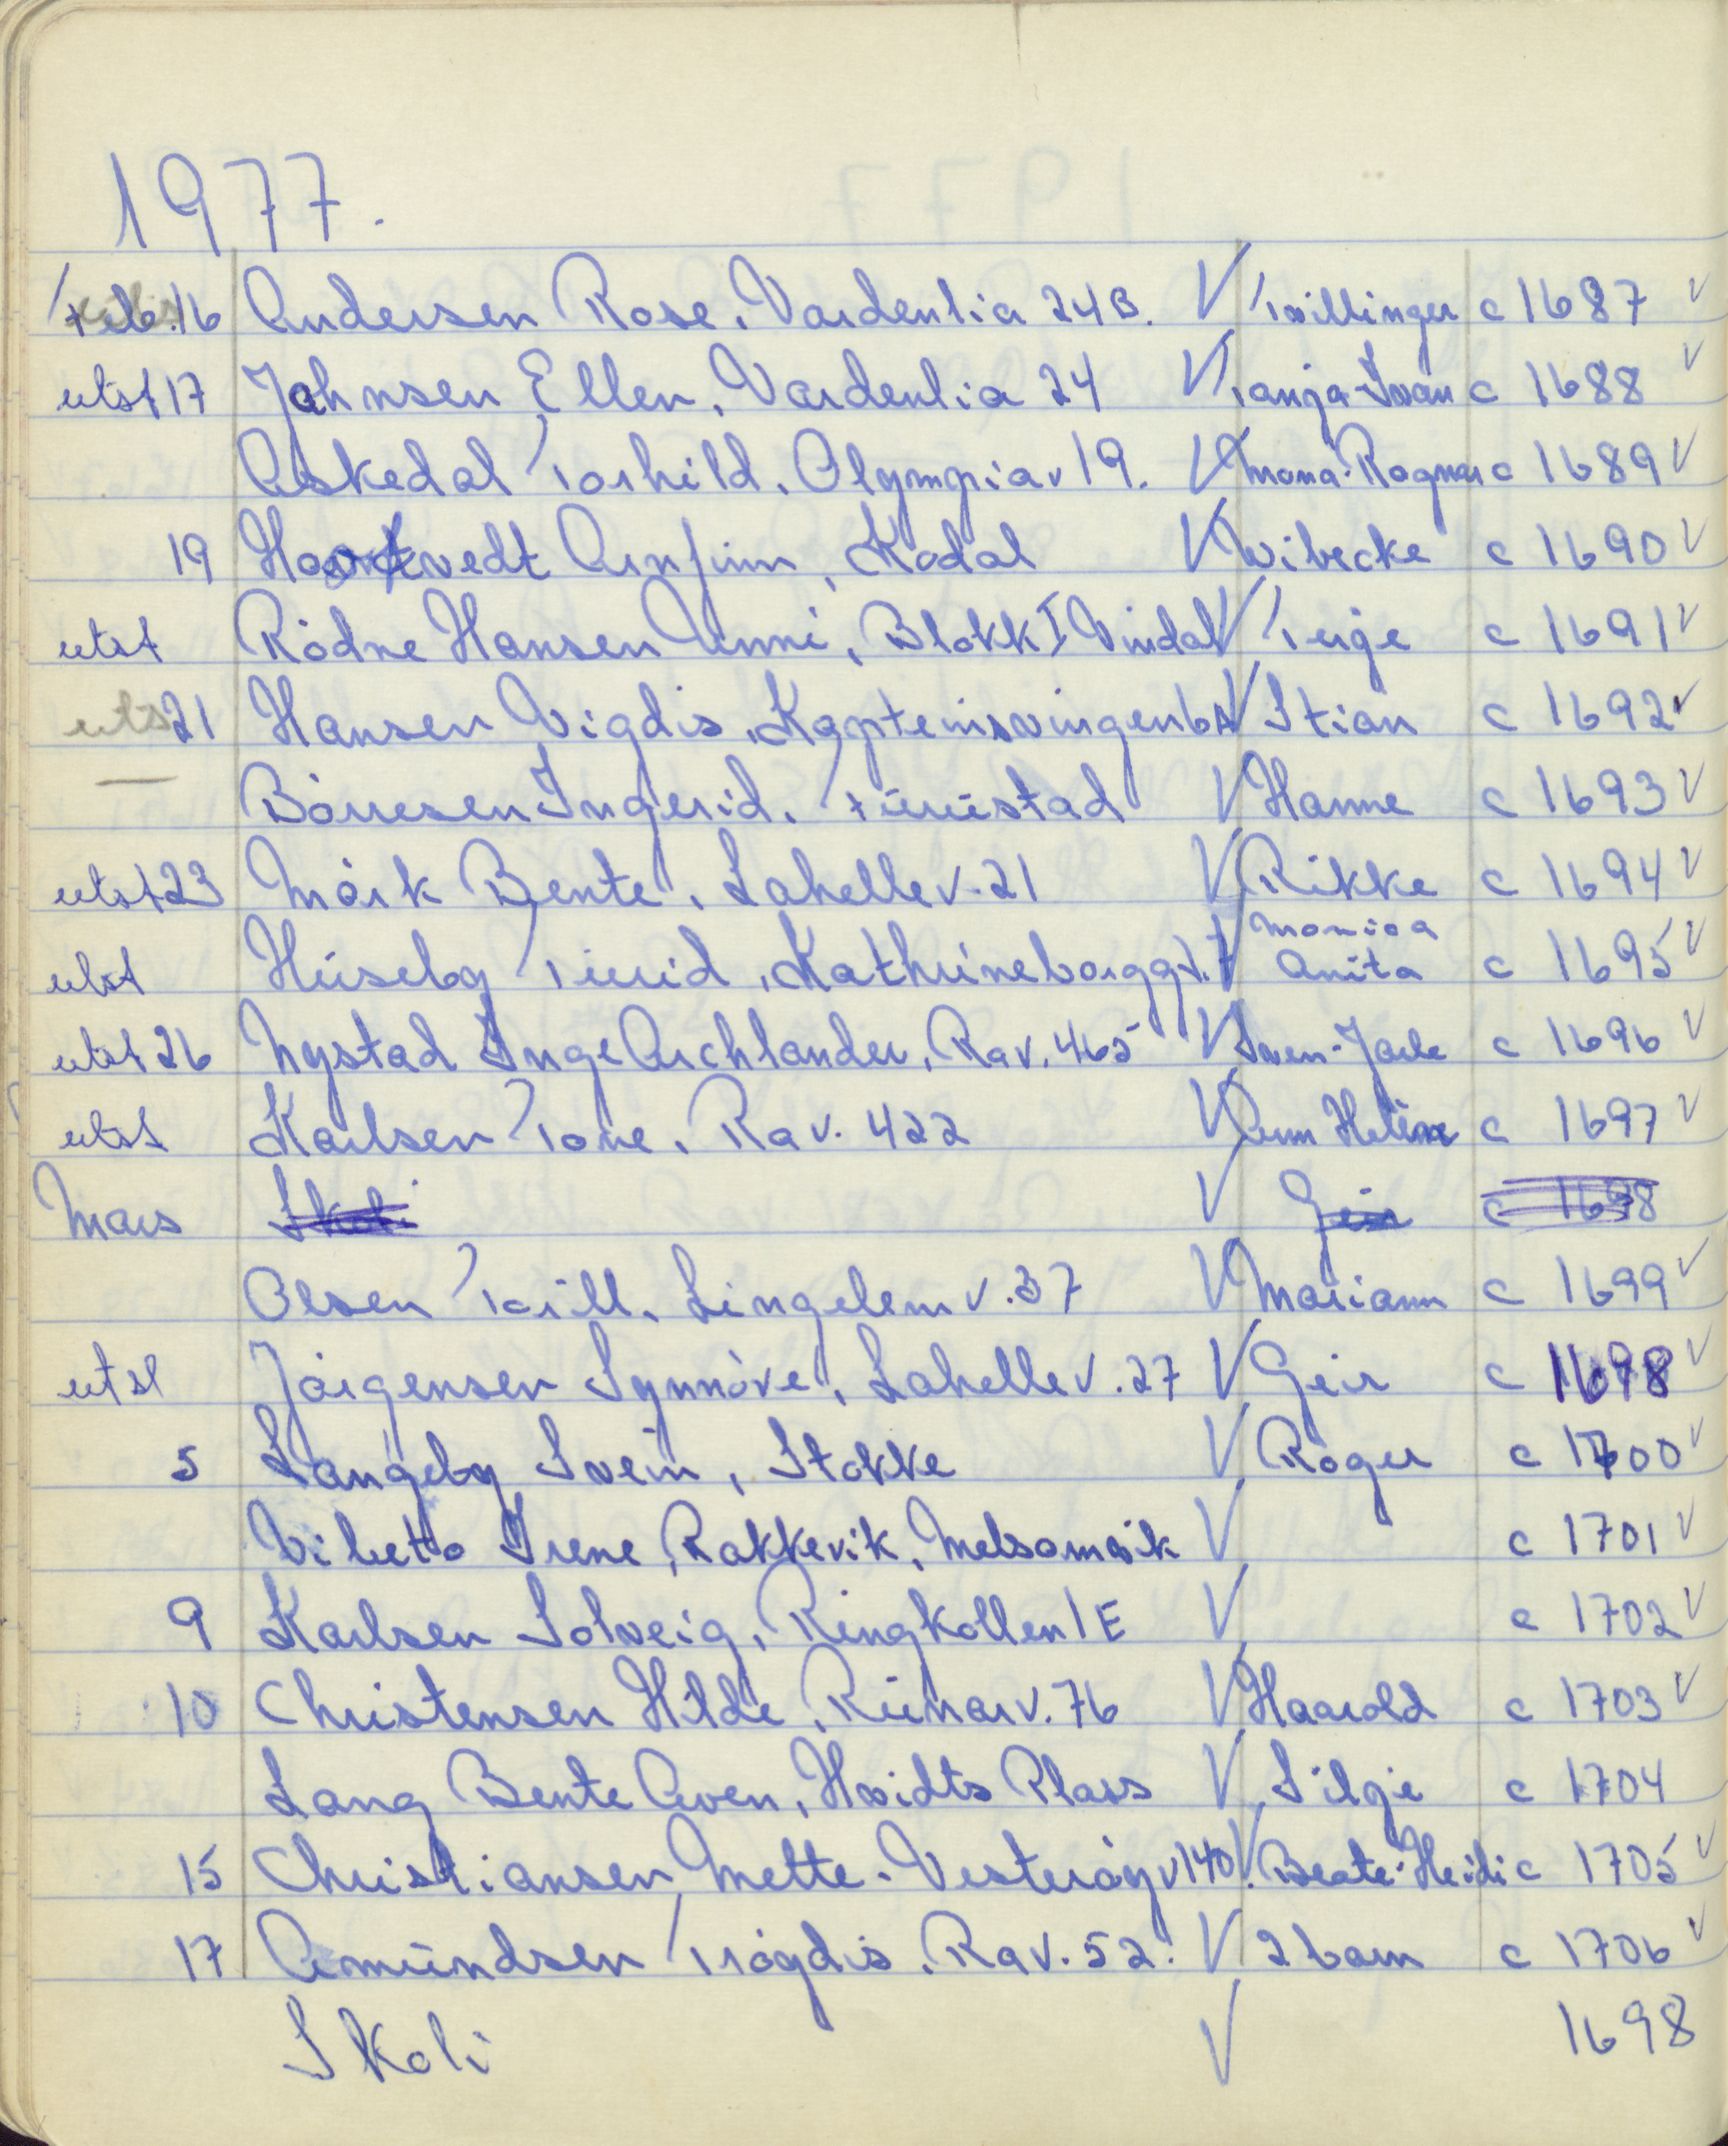 1977.
Feb. 16 Andersen Rose, Vardenlia 24B. V Tvillinger c 1687 V
utst 17 Johnsen Ellen, Vardenlia 24 V Tanja-Ivan c 1688 V
Askedal Torhild, Olympiav 19. V Mona-Ragnar c 1689 V
19 Hoovtvedt Arnfinn, Kodal V Wibecke c 1690 V
utst Rödne Hansen Unni, Blokk I Vindal V Terje c 1691 V
utst 21 Hansen Vigdis, Kapteinsvingen 6A V Stian c 1692 V
— Börresen Ingerid, Furustad V Hanne c 1693 V
utst 23 Mörk Bente, Lahellev. 21 V Rikke c 1694 V
Monica
utst Huseby Turid, Kathrineborggt. 7 V Anita c 1695 V
utst 26 Nystad Inge Archlander, Rav. 465 V Sven-Jarle c 1696 V
utst Karlsen Tone, Rav. 422 V Ann Helen c 1697 V
Mars Skoli V Geir c 1698
Olsen Torill, Lingelemv. 37 V Mariann c 1699 V
utst Jörgensen Synnöve, Lahellev. 27 V Geir c 1698 V
5 Langeby Svein, Stokke V Roger c 1700 V
Vibetto Irene, Rakkevik, Melsomvik V c 1701 V
9 Karlsen Solveig, Ringkollen 1E V c 1702 V
10 Christensen Hilde, Runarv. 76 V Haarold c 1703 V
Lang Bente Aven, Hvidts Plass V Silje c 1704
15 Christiansen Mette. Vesteröyv 140. V Beate-Heidi c 1705 V
17 Amundsen Trögdis, Rav. 52. V 2 barn c 1706 V
Skoli V 1698